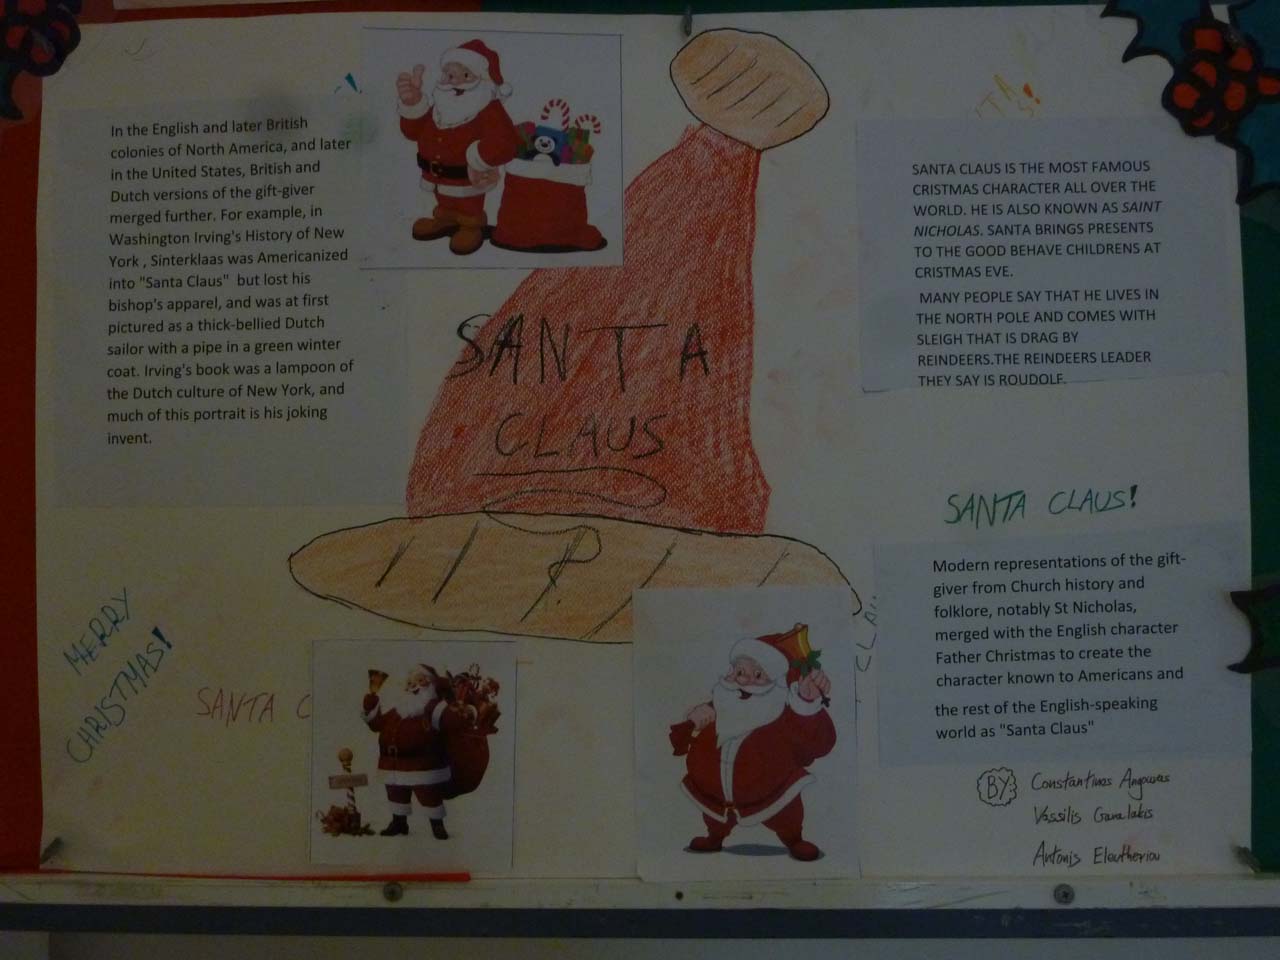 In the English and later British
colonies of North America, and later
in the United States, British and
Dutch versions of the gift-giver
merged further. For example, in
Washington Irving's History of New
York , Sinterklaas was Americanized
into "Santa Claus"  but lost his
bishop's apparel, and was at first
pictured as a thick-bellied Dutch
sailor with a pipe in a green winter
coat. Irving's book was a lampoon of
the Dutch culture of New York, and
much of this portrait is his joking
invent.
SANTA
CLAUS
SANTA CLAUS IS THE MOST FAMOUS
CRISTMAS CHARACTER ALL OVER THE
WORLD. HE IS ALSO KNOWN AS SAINT
NICHOLAS. SANTA BRINGS PRESENTS
TO THE GOOD BEHAVE CHILDRENS AT
CRISTMAS EVE.
MANY PEOPLE SAY THAT HE LIVES IN
THE NORTH POLE AND COMES WITH
SLEIGH THAT IS DRAG BY
REINDEERS.THE REINDEERS LEADER
THEY SAY IS ROUDOLF.
SANTA CLAUS!
Modern representations of the gift-
giver from Church history and
folklore, notably St Nicholas,
merged with the English character
Father Christmas to create the
character known to Americans and
the rest of the English-speaking
world as "Santa Claus"
MERRY
CHRISTMAS!
SANTA C
BY Constantinos
Vassilis
Antonis Eleutheriou